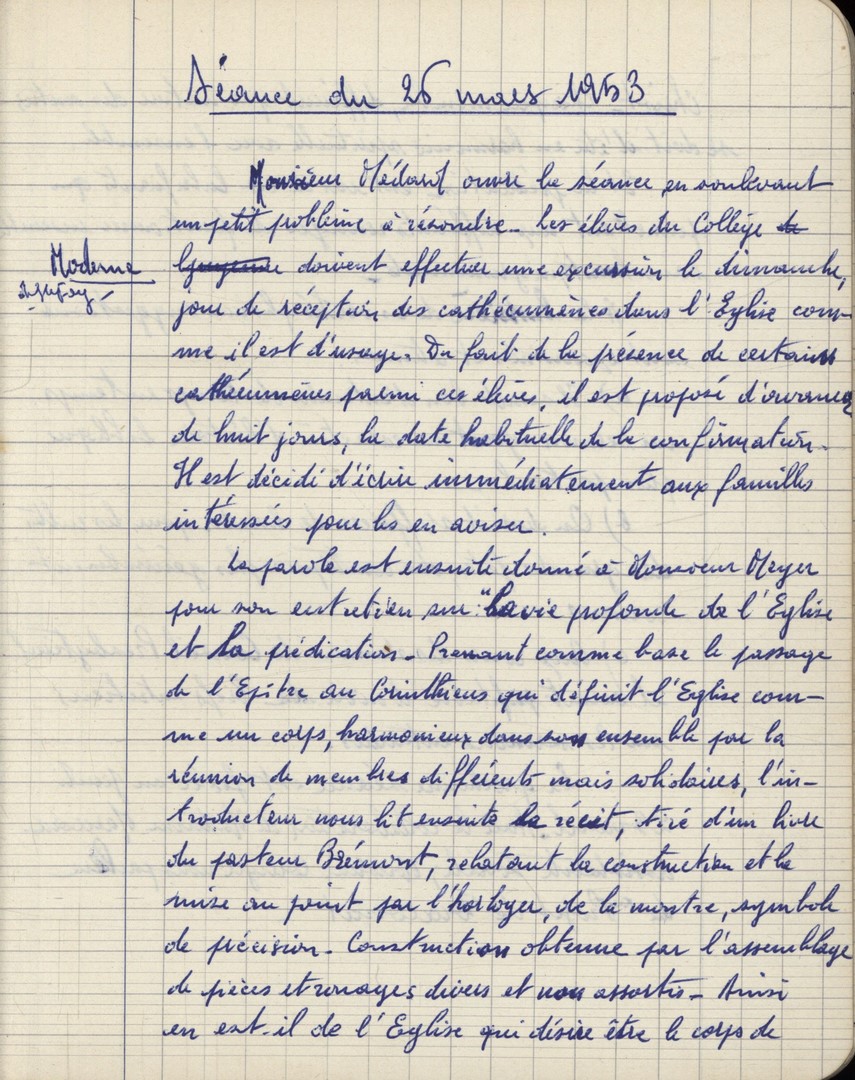 Séance du 26 mars 1953
Monsieur Médard ouvre la séance en soulevant
un petit problème à résoudre. Les élèves du Collège de
Moderne
doivent effectuer une excursion le dimanche,
jour de réception des cathécumènes dans l'Eglise com-
me il est d'usage. Du fait de la présence de certains
cathécumènes parmi ces élèves, il est proposé d'avancer
de huit jours, la date habituelle de la confirmation.
Il est décidé d'écrire immédiatement aux familles
intéressées pour les en aviser.
La parole est ensuite donné à Monsieur Meyer
pour son entretien sur "La vie profonde de l'Eglise
et la prédication. Prenant comme base le passage
de l'Epitre au Corinthiens qui définit l'Eglise com-
me un corps, harmonieux dans son ensemble par la
réunion de membres différents mais solidaires, l'in-
troducteur nous lit ensuite le récit, tiré d'un livre
du pasteur Brémont, relatant la construction et la
mise au point par l'horloger, de la montre, symbole
de précision. Construction obtenue par l'assemblage
de pièces et rouages divers et non assortis. Ainsi
en est-il de l'Eglise qui désire être le corps de